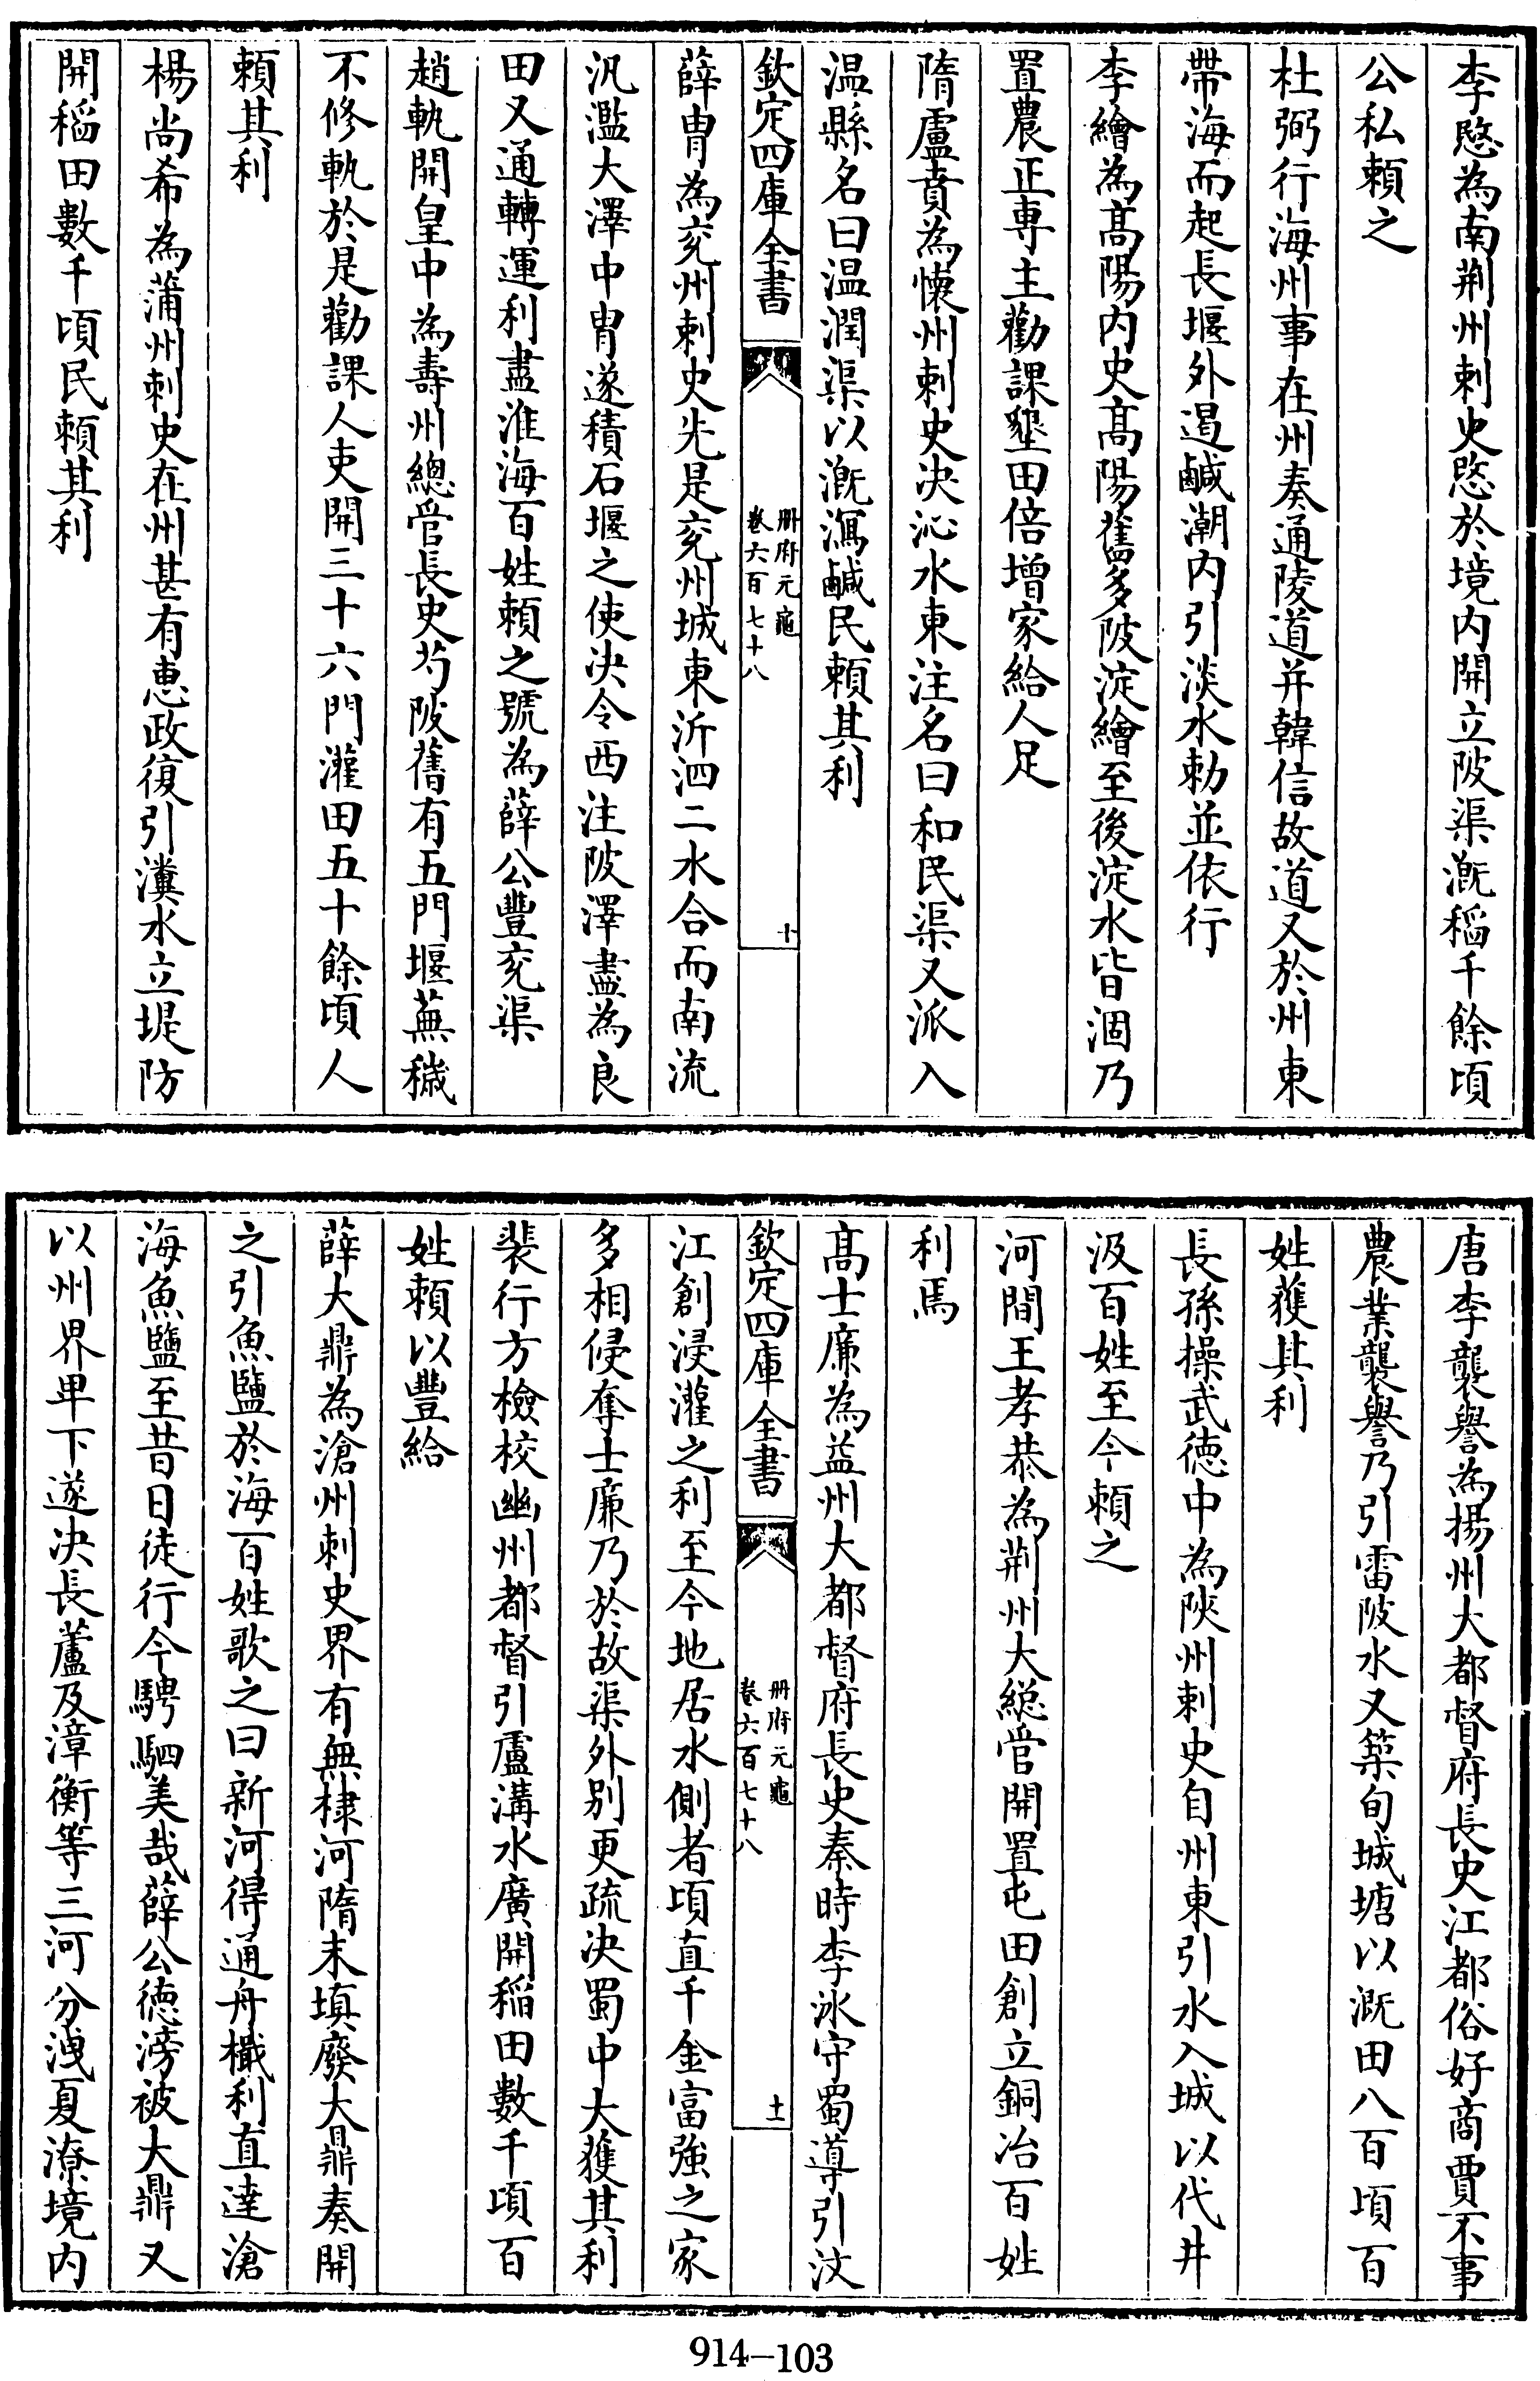 李愍為南荆州刺史愍於境内開立陂渠溉稻千餘頃
公私頼之
杜弼行海州事在州奏通陵道并韓信故道又於州東
帶海而起長堰外遏鹹潮内引淡水勅並依行
李繪為髙陽内史髙陽舊多陂淀繪至後淀水皆涸乃
置農正専主勸課墾田倍增家給人足
隋盧賁為懷州刺史决沁水東注名曰和民渠又派入
温縣名曰温潤渠以溉潟鹹民頼其利
欽定四庫全書
册府元龜
卷六百七十八
十
薛胄為兖州刺史先是兖州城東沂泗二水合而南流
汎濫大澤中胄遂積石堰之使决令西注陂澤盡為良
田又通轉運利盡淮海百姓頼之號為薛公豐兖渠
趙軌開皇中為壽州總管長史芍陂舊有五門堰蕪穢
不修軌於是勸課人吏開三十六門灌田五十餘頃人
頼其利
楊尚希為蒲州刺史在州甚有惠政復引瀵水立堤防
開稻田數千頃民頼其利
唐李襲譽為揚州大都督府長史江都俗好商賈不事
農業襲譽乃引雷陂水又築句城塘以溉田八百頃百
姓獲其利
長孫操武徳中為陜州刺史自州東引水入城以代井
汲百姓至今頼之
河間王孝恭為荆州大総管開置屯田創立銅冶百姓
利焉
髙士廉為益州大都督府長史秦時李冰守蜀導引汶
欽定四庫全書
册府元龜
卷六百七十八
十一
江創浸灌之利至今地居水側者頃直千金富強之家
多相侵奪士廉乃於故渠外别更疏决蜀中大獲其利
裴行方檢校幽州都督引盧溝水廣開稻田數千頃百
姓頼以豐給
薛大鼎為滄州刺史界有無棣河隋末填廢大鼎奏開
之引魚鹽於海百姓歌之曰新河得通舟檝利直逹滄
海魚鹽至昔日徒行今騁駟美哉薛公徳滂被大鼎又
以州界卑下遂决長蘆及漳衡等三河分洩夏潦境内
914-103